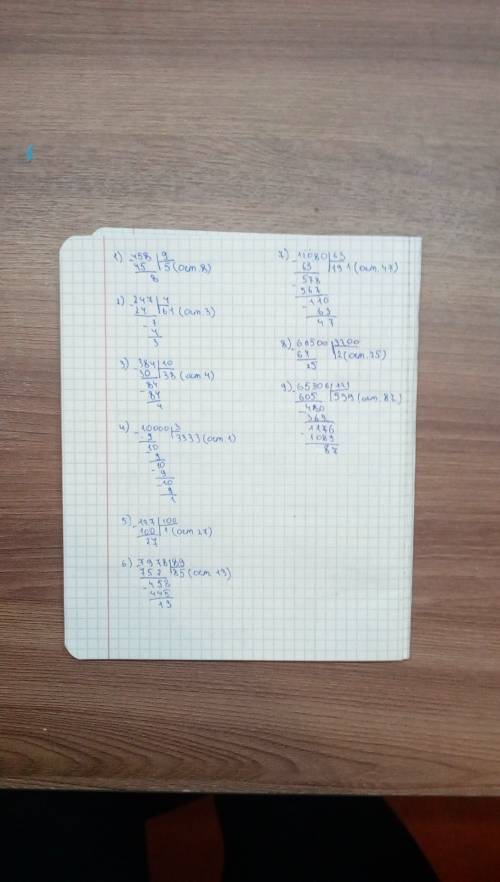 1) -458|9
45 |5 (ост. 8)
8
2) -247|4
24 |61 (ост 3)
-7
4
3
3) -384|10
30 |38 (ост 4)
-84
84
4
4) -10000|3
9 |3333 (ост. 1)
10
9
-10
9
-10
9
1
5) -127|100
100 |1 (ост 27)
27
6) -7978|89
752 |85 (ост 19)
-458
445
19
7) -11080|63
63 |191 (ост. 47)
-578
567
-110
63
47
8) -60500|3200
64 |2 (ост. 25)
25
9) -65306|121
605 |539 (ост. 87)
-480
363
-1176
1089
87